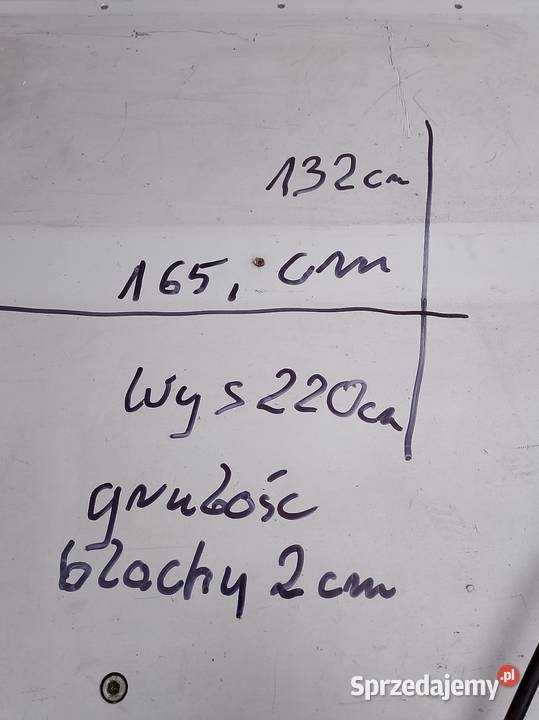 132cm
165, cm
Wys 220cm
grubość
blachy 2cm
Sprzedajemy.pl